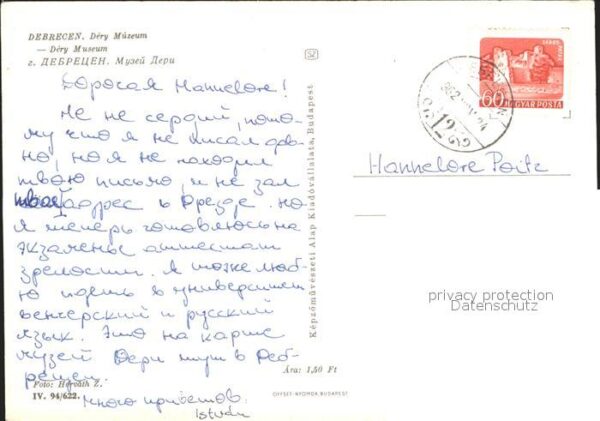 DEBRECEN. Déry Múzeum
— Déry Museum
г. ДЕБРЕЦЕН. Музей Дери
Дорогая Hannelore!
Не не сердий, пото-
му что я не писал дав-
но, но я не находил
твою письмо, и не знал
твой адрес в Дрезде. Но
я теперь готовлюсь на
экзамены аттестат
зрелости. Я тоже люб-
ю пойть в университет
венгерский и русский
язык. Это на карте
музей Дери тут в Деб-
рецен.
Много приветов.
István
Foto: Horváth Z.
IV. 94/622.
Ára: 1,50 Ft
OFFSET-NYOMDA, BUDAPEST
Képzőművészeti Alap Kiadóvállalata, Budapest
60
MAGYAR POSTA
Hannelore
privacy protection
Datenschutz